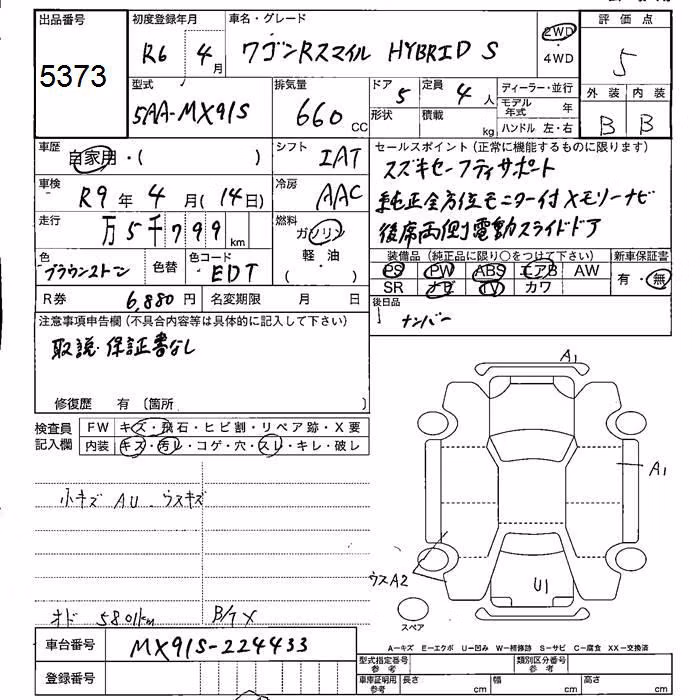 出品番号 初度登録年月 車名・グレード 評価点
5373 R6 4月 ワゴンRスマイル HYBRID S 2WD ・4WD 5
型式 5AA-MX91S 排気量 660 CC ドア 5 定員 4人 ディーラー・並行
形状 積載 kg モデル年式 年 ハンドル 左・右
外装 内装
B B
車歴 自家用・( ) シフト IAT
セールスポイント(正常に機能するものに限ります)
スズキセーフティサポート
純正全方位モニター付メモリーナビ
後席両側電動スライドドア
車検 R9年 4月(14日) 冷房 AAC
走行 万5千799km 燃料 ガソリン 軽・油 ( )
色 ブラウンストーン 色替 色コード EDT
装備品(純正品に限り○をつけて下さい) 新車保証書
PS PW ABS エアB AW 有・無
SR ナビ TV カワ
R券 6,880円 名変期限 月 日
後日品
ナンバー
注意事項申告欄(不具合内容等は具体的に記入して下さい)
取説・保証書なし
修復歴 有 〔箇所
検査員記入欄 FW キズ・飛石・ヒビ割・リペア跡・X要
内装 キズ・汚レ・コゲ・穴・スレ・キレ・破レ
小キズ AU ウスキズ
オド 5801km B/7 X
A1
A1
ウスA2
U1
スペア
車台番号 MX91S-224433
登録番号
A…キズ E…エクボ U…凹み W…補修跡 S…サビ C…腐食 XX…交換済
型式指定番号参考 類別区分番号参考
車庫証明用参考 長さ cm 幅 cm 高さ cm